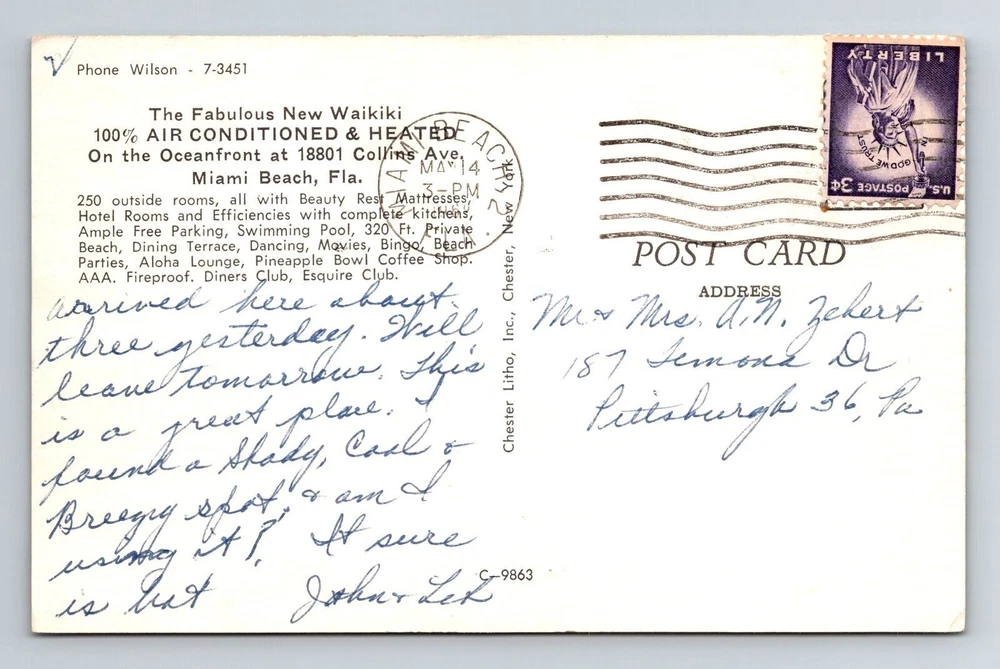 Phone Wilson - 7-3451
The Fabulous New Waikiki
100% AIR CONDITIONED & HEATED
On the Oceanfront at 18801 Collins Ave.
Miami Beach, Fla.
250 outside rooms, all with Beauty Rest Mattresses,
Hotel Rooms and Efficiencies with complete kitchens,
Ample Free Parking, Swimming Pool, 320 Ft. Private
Beach, Dining Terrace, Dancing, Movies, Bingo, Beach
Parties, Aloha Lounge, Pineapple Bowl Coffee Shop.
AAA. Fireproof. Diners Club, Esquire Club.
arrived here about
three yesterday. Will
leave tomorrow. This
is a great place. I
found a Shady, Cool &
Breezy spot, & am I
using it! It sure
is hot
John &
C-9863
Chester Litho, Inc., Chester, New York
MIAMI BEACH
MAY 14
3-PM
FLA. 2
U.S. POSTAGE 3¢
IN GOD WE TRUST
LIBERTY
POST CARD
ADDRESS
Mr & Mrs. A.N. Zehert
187 Temona Dr
Pittsburgh 36, Pa